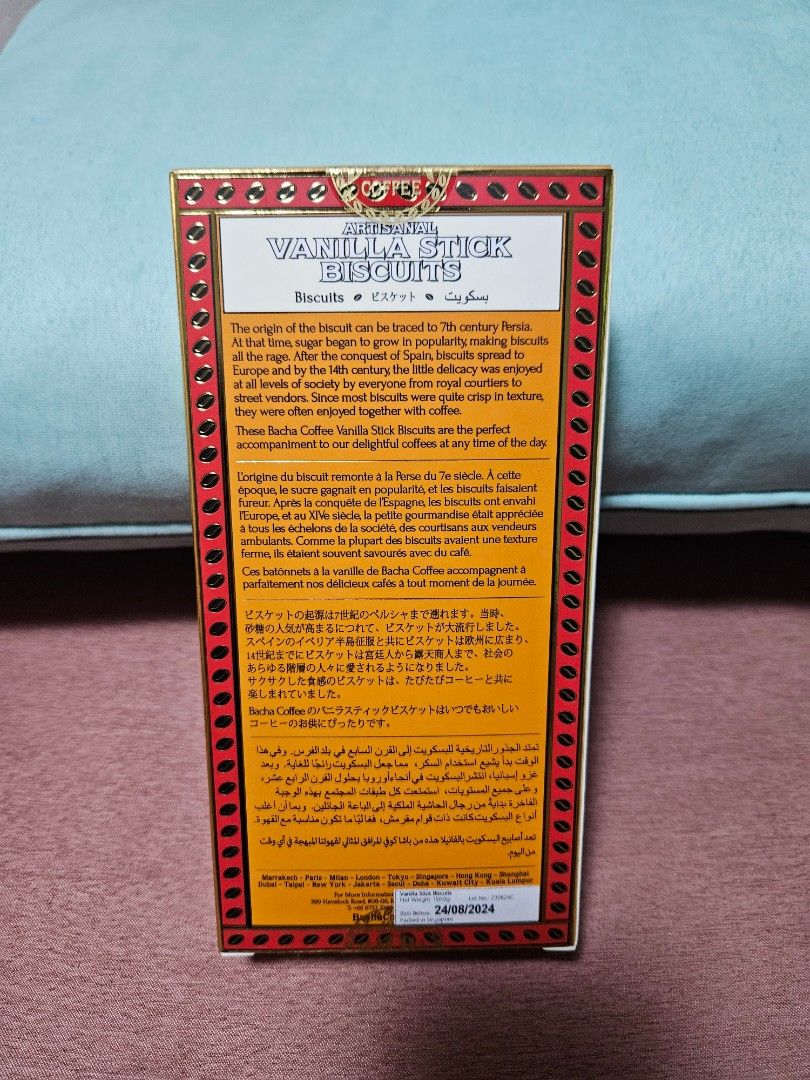 COFFEE
ARTISANAL
VANILLA STICK
BISCUITS
Biscuits ビスケット بسكويت
The origin of the biscuit can be traced to 7th century Persia.
At that time, sugar began to grow in popularity, making biscuits
all the rage. After the conquest of Spain, biscuits spread to
Europe and by the 14th century, the little delicacy was enjoyed
at all levels of society by everyone from royal courtiers to
street vendors. Since most biscuits were quite crisp in texture,
they were often enjoyed together with coffee.
These Bacha Coffee Vanilla Stick Biscuits are the perfect
accompaniment to our delightful coffees at any time of the day.
L'origine du biscuit remonte à la Perse du 7e siècle. À cette
époque, le sucre gagnait en popularité, et les biscuits faisaient
fureur. Après la conquête de l'Espagne, les biscuits ont envahi
l'Europe, et au XIVe siècle, la petite gourmandise était appréciée
à tous les échelons de la société, des courtisans aux vendeurs
ambulants. Comme la plupart des biscuits avaient une texture
ferme, ils étaient souvent savourés avec du café.
Ces batônnets à la vanille de Bacha Coffee accompagnent à
parfaitement nos délicieux cafés à tout moment de la journée.
ビスケットの起源は7世紀のペルシャまで遡れます。当時、
砂糖の人気が高まるにつれて、ビスケットが大流行しました。
スペインのイベリア半島征服と共にビスケットは欧州に広まり、
14世紀までにビスケットは宮廷人から露天商人まで、社会の
あらゆる階層の人々に愛されるようになりました。
サクサクした食感のビスケットは、たびたびコーヒーと共に
楽しまれていました。
Bacha Coffee のバニラスティックビスケットはいつでもおいしい
コーヒーのお供にぴったりです。
تمتد الجذور التاريخية للبسكويت إلى القرن السابع في بلد الفرس. وفي هذا
الوقت بدأ يشيع استخدام السكر، مما جعل البسكويت رائجًا للغاية. وبعد
غزو إسبانيا، انتشر البسكويت في أنحاء أوروبا بحلول القرن الرابع عشر،
وعلى جميع المستويات، استمتعت كل طبقات المجتمع بهذه الوجبة
الفاخرة بداية من رجال الحاشية الملكية إلى الباعة الجائلين. وبما أن أغلب
أنواع البسكويت كانت ذات قوام مقرمش، فغالبًا ما تكون مناسبة مع القهوة.
تعد أصابيع البسكويت بالفانيلا هذه من باشا كوفي المرافق المثالي لقهوتنا المبهجة في أي وقت
من اليوم.
Marrakech - Paris - Milan - London - Tokyo - Singapore - Hong Kong - Shanghai
Dubai - Taipei - New York - Jakarta - Seoul - Doha - Kuwait City - Kuala Lumpur
For More Information
390 Havelock Road, #08-06,
BachaCo
Vanilla Stick Biscuits
Net Weight: 150.0g Lot No.:
Best Before: 24/08/2024
Packed in Singapore